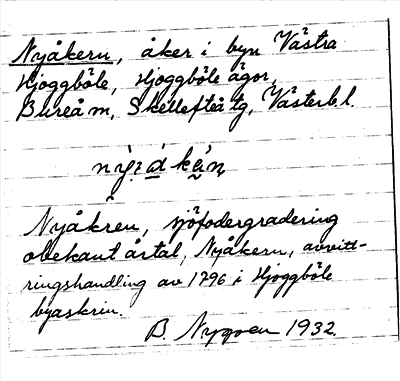 Nyåkern, åker i byn Västra
Hjoggböle, Hjoggböle ägor,
Bureå sn, Skellefteå tg, Västerb. l.
Nyåkren, sjöfodergradering
obekant årtal, Nyåkern, avvitt-
ringshandling av 1796 i Hjoggböle
byaskrin.
B. Nyqven 1932.